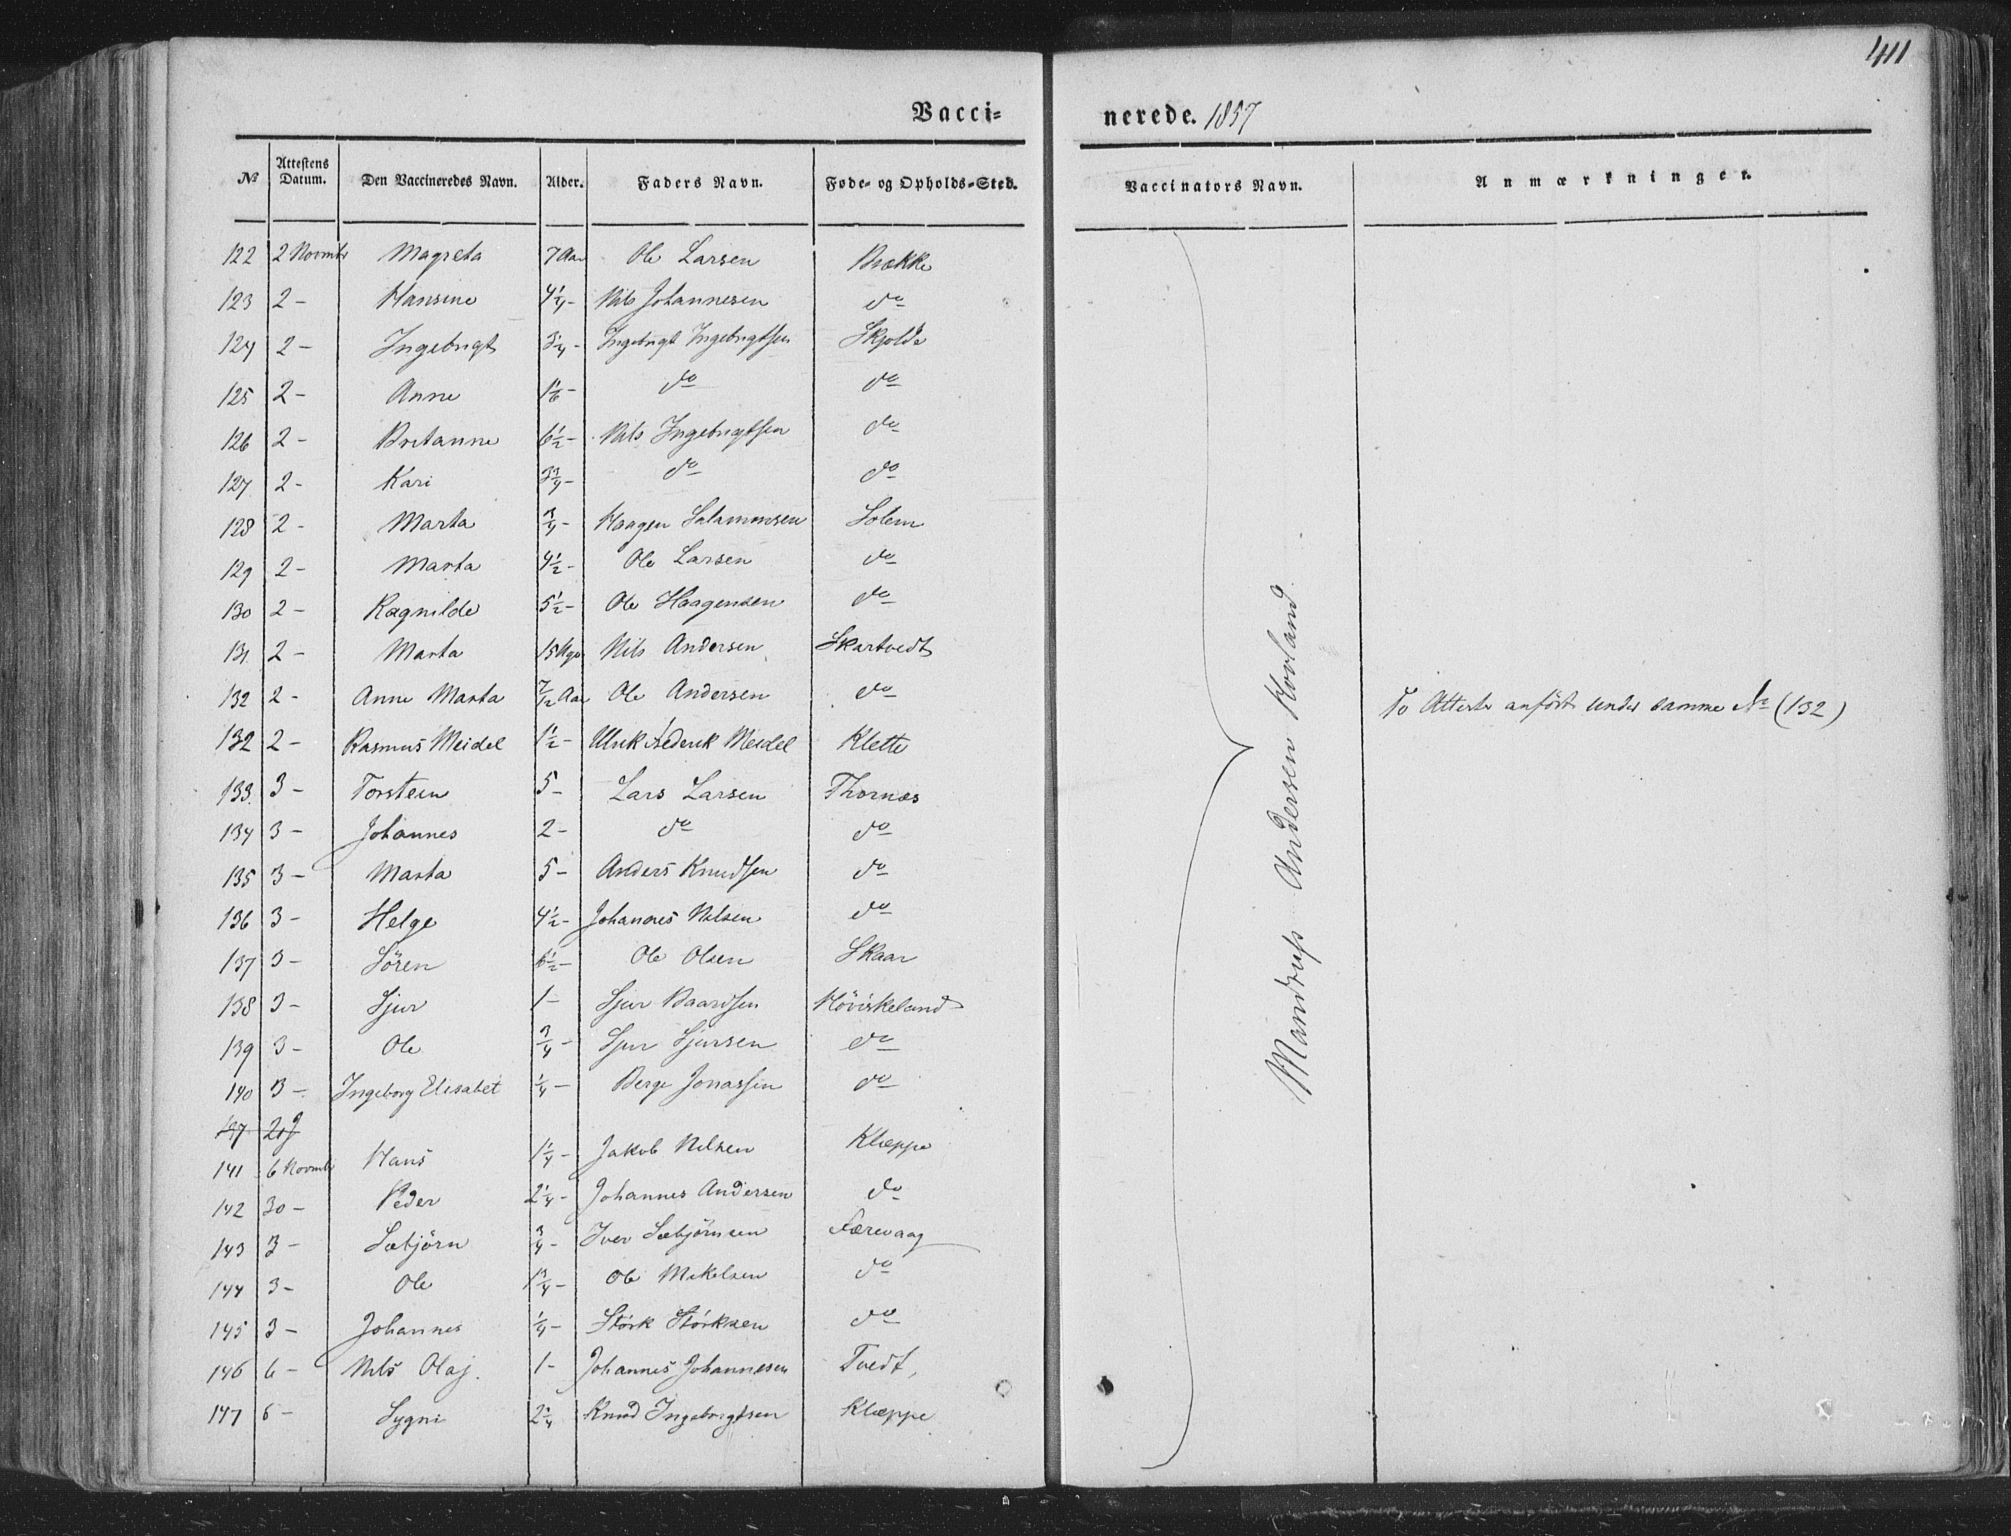 411
Vacci- nerede. 1857
No Attestens Datum. Den Vaccineredes Navn. Alder. Faders Navn. Føde- og Opholds-Sted. Vaccinators Navn. Anmærkninger.
122 2 Novmbr Magreta 7 Aar Ole Larsen Brække
123 2 - Hansine 4 1/4 - Nils Johannesen do
124 2 - Ingebrigt 3 1/4 - Ingebrigt Ingebrigtsen Skjolde
125 2 - Anne 1 1/6 - do do
126 2 - Britanne 6 1/2 - Nils Ingebrigtsen do
127 2 - Kari 3 3/4 - do do
128 2 - Marta 3/4 - Haagen Salamonsen Solem
129 2 - Marta 4 1/2 - Ole Larsen do
130 2 - Ragnilde 5 1/2 - Ole Haagensen do
131 2 - Marta 15 Uger Nils Andersen Skartvedt
132 2 - Anne Marta 7/12 Aar Ole Andersen do To Attester anført under samme No (132)
132 2 - Rasmus Meidel 1 1/2 - Ulrik Frederik Meidel Klette
133 3 - Torstein 5 - Lars Larsen Thornæs
134 3 - Johannes 2 - do do
135 3 - Marta 5 - Anders Knudsen do
136 3 - Helge 4 1/2 - Johannes Nilsen do
137 3 - Sören 6 1/2 - Ole Olsen Skaar
138 3 - Sjur 1 - Sjur Baardsen Höviskeland
139 3 - Ole 3/4 - Sjur Sjursen do
140 3 - Ingeborg Elisabet 1/4 - Berge Jonassen do
141 6 Novmbr Hans 1 1/4 - Jakob Nilsen Klæppe
142 30 - Peder 2 1/4 - Johannes Andersen do
143 3 - Sæbjörn 3/4 - Iver Sæbjörnsen Færevaag
144 3 - Ole 1 3/4 - Ole Mikelsen do
145 3 - Johannes 1/4 - Störk Störksen do
146 6 - Nils Olaj. 1 - Johannes Johannesen Tvedt,
147 6 - Sygni 2 1/4 Knud Ingebrigtsen Klæppe
Mandrup Andersen Hovland